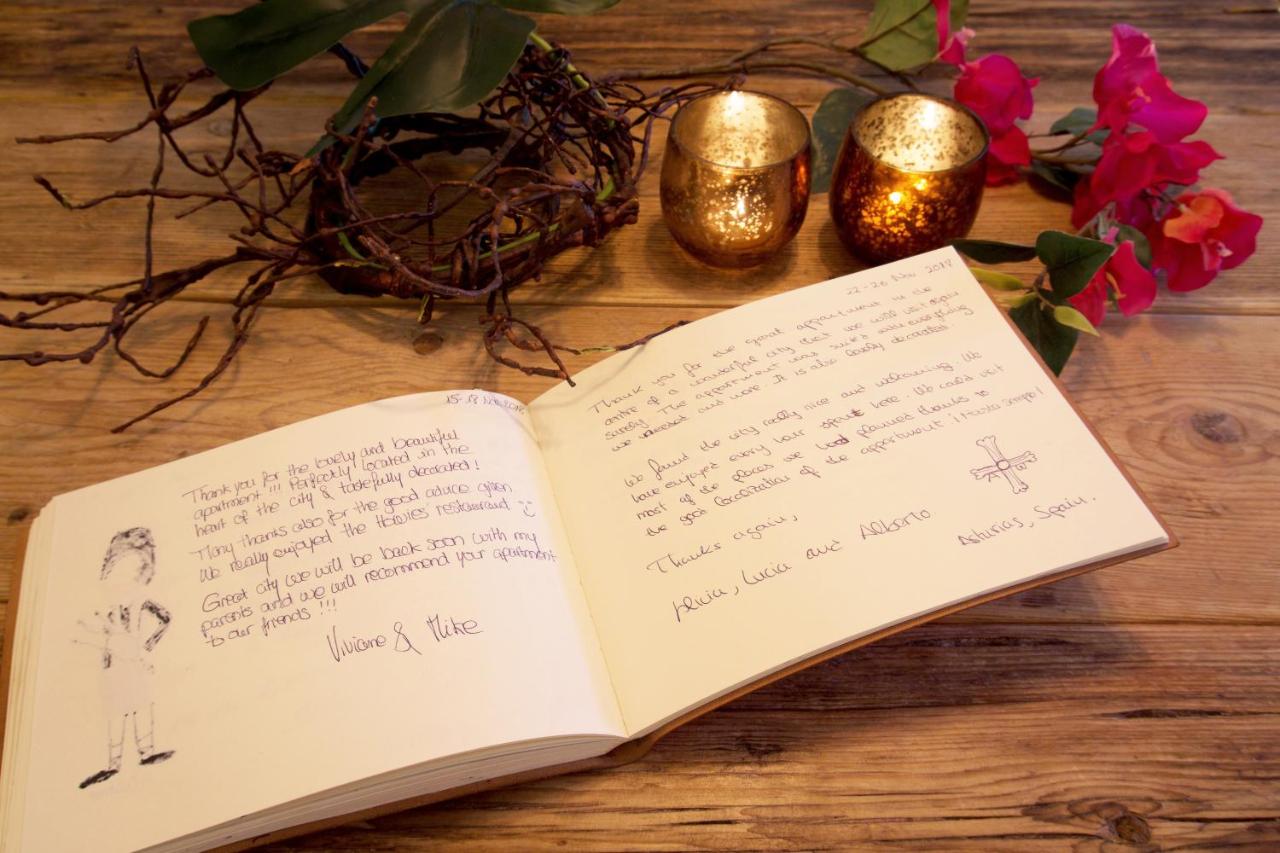 15-18 Nov 2018
Thank you for the lovely and beautiful
apartment!!! Perfectly located in the
heart of the city & tastefully decorated!
Many thanks also for the good advice given
We really enjoyed the Howies' restaurant
Great city we will be back soon with my
parents and we will recommend your apartment
to our friends!!!
Viviane & Mike
22-26 Nov 2018
Thank you for the good appartment in the
centre of a wonderful city that we will visit again
surely. The appartment was suited with everything
we needed and more. It is also lovely decorated.
We found the city really nice and welcoming. We
have enjoyed every hour spent here. We could visit
most of the places we had planned thanks to
the good localization of the appartment. ¡Hasta siempre!
Thanks again,
Alicia, Lucia and Alberto
Asturias, Spain.